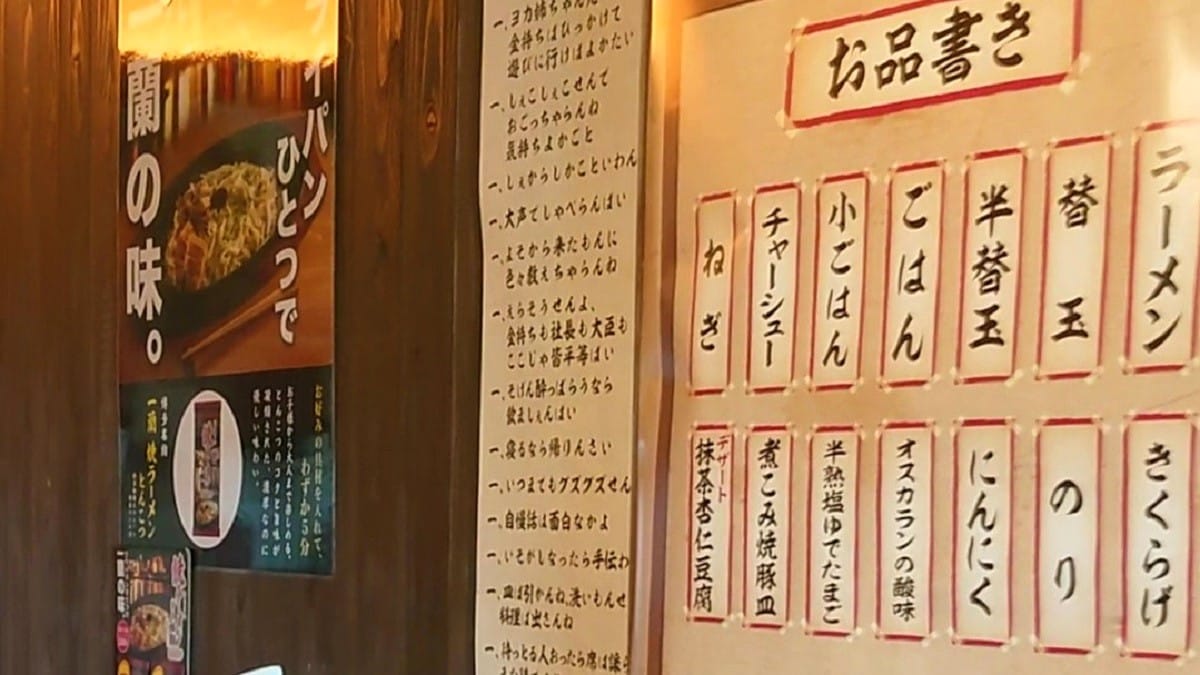 イパン
ひとつで
蘭の味。
お好みの具材を入れて、
わずか5分
お子様から大人まで楽しめる、
とんこつのコクと旨味が
優しい味わい。
博多本舗
一蘭 焼ラーメン
とんこつ
蘭の味
一、ヨカ姉ちゃんた
金持ちはひっかけて
遊びに行けばよかたい
一、しぇこしぇこせんで
おごっちゃらんね
気持ちよかこと
一、しぇからしかこといわん
一、大声でしゃべらんばい
一、よそから来たもんに
色々教えちゃらんね
一、えらそうせんよ、
金持ちも社長も大臣も
ここじゃ皆平等ばい
一、そげん酔っぱらうなら
飲ましぇんばい
一、寝るなら帰りんさい
一、いつまでもグズグズせん
一、自慢話は面白なかよ
一、いそがしなったら手伝わ
一、皿は引かんね、洗いもんせ
料理は出さんね
一、待っとる人おったら席は譲ら
お品書き
ラーメン
替玉
半替玉
ごはん
小ごはん
チャーシュー
ねぎ
きくらげ
のり
にんにく
オスカランの酸味
半熟塩ゆでたまご
煮こみ焼豚皿
デザート
抹茶杏仁豆腐